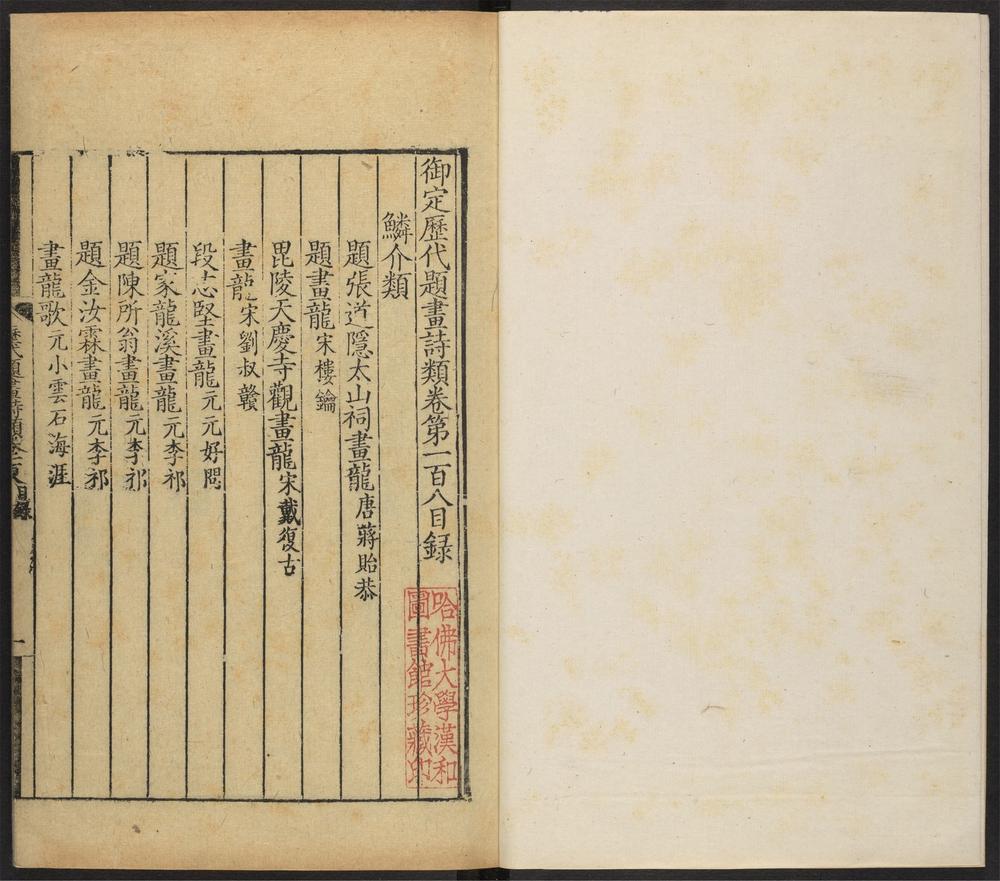 御定歷代題畫詩類卷第一百八目錄
鱗介類
題張道隱太山祠畫龍唐蔣貽恭
題畫龍宋樓鑰
毘陵天慶寺觀畫龍宋戴復古
畫龍宋劉叔贛
段志堅畫龍元元好問
題家龍溪畫龍元李祁
題陳所翁畫龍元李祁
題金汝霖畫龍元李祁
畫龍歌元小雲石海涯
歷代題畫詩類卷一百八目錄
一
哈佛大學漢和
圖書館珍藏印